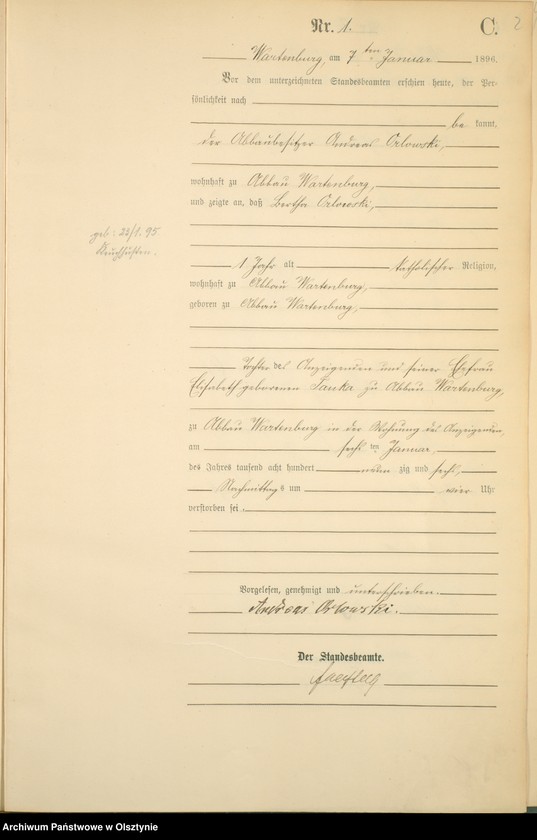 Nr. 1.
C.
2
Wartenburg, am 7ten Januar 1896.
Vor dem unterzeichneten Standesbeamten erschien heute, der Per-
sönlichkeit nach
be kannt,
der Abbaubesitzer Andreas Orlowski,
wohnhaft zu Abbau Wartenburg,
und zeigte an, daß Bertha Orlowski,
geb: 23/1. 95
Keuchhusten.
1 Jahr alt katholischer Religion,
wohnhaft zu Abbau Wartenburg,
geboren zu Abbau Wartenburg,
Tochter des Anzeigenden und seiner Ehefrau
Elisabeth geborenen zu Abbau Wartenburg,
zu Abbau Wartenburg in der Wohnung des Anzeigenden,
am sechsten Januar
des Jahres tausend acht hundert neun zig und sechs,
Nachmittags um vier Uhr
verstorben sei.
Vorgelesen, genehmigt und unterschrieben.
Andreas Orlowski.
Der Standesbeamte.
Archiwum Państwowe w Olsztynie